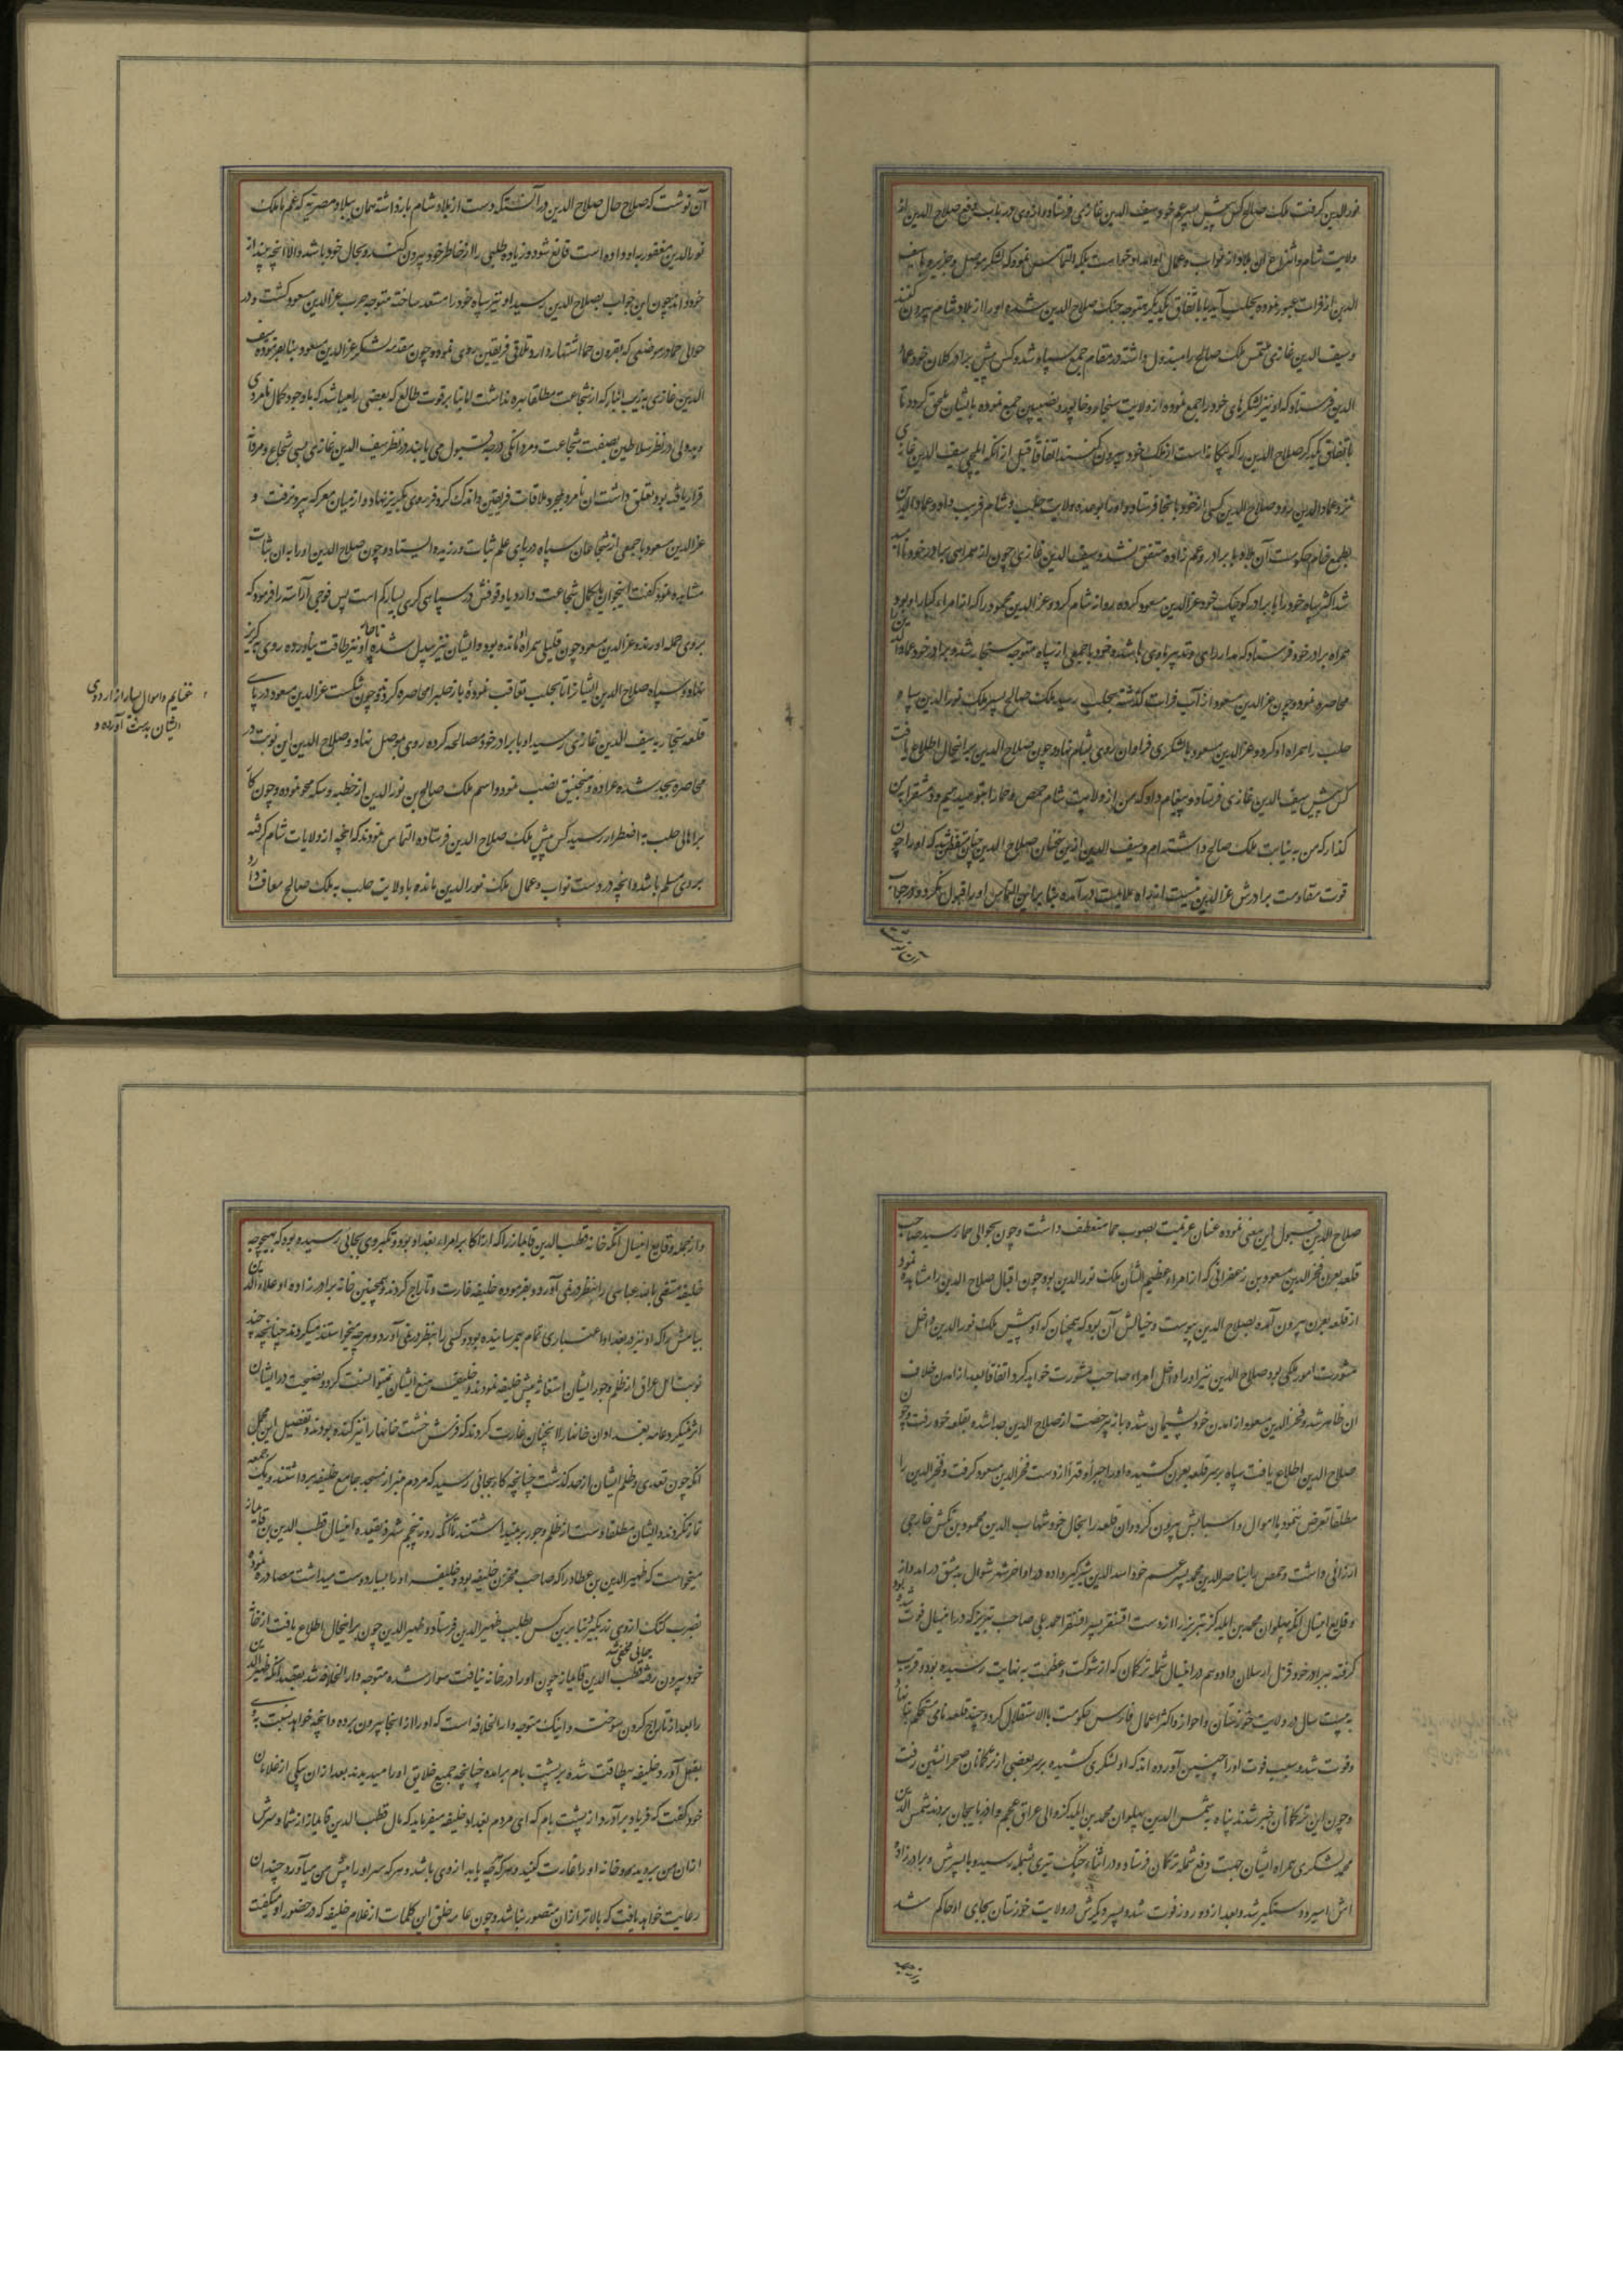 نورالدین گرفت ملک صالح کس پیش پسر عم خود سیف الدین غازی فرستاد و از وی در باب دفع صلاح الدین از
ولایت شام و انتزاع آن بلاد از نواب و عمال او امداد خواست بلکه التماس نمود که لشکر موصل و جزیره با سیف
الدین از فرات عبور نموده بحلب آید تا باتفاق یکدیگر متوجه جنک صلاح الدین شده او را از بلاد شام بیرون کنند
و سیف الدین غازی ملتمس ملک صالح را مبذول داشته در مقام جمع سپاه شد و کس پیش برادر کلان خود عماد
الدین فرستاد که او نیز لشکرهای خود را جمع نموده از ولایت سنجار و خابور و نصیبین جمع نموده بایشان ملحق گردد تا
باتفاق یکدیگر صلاح الدین را که بیکانه است از ملک خود بیرون کنند اتفاقا قبل از آنکه ایلچی سیف الدین غازی
نزد عمادالدین رود صلاح الدین کسی از خود بانجا فرستاده او را بوعده ولایت حلب و شام فریب داد و عماد الدین
بطمع خام حکومت آن بلاد با برادر و عم زاده متفق نشد و سیف الدین غازی چون از همراهی برادر خود ناامید
شد اکثر سپاه خود را با برادر کوچک خود عزالدین مسعود کرده روانه شام کرد و عزالدین محمود را که از امراء کبار او بود
همراه برادر خود فرستاد که مدار رای و تدبیر باوی باشد و خود با جمعی از سپاه متوجه سنجار شد و برادر خود عمادالدین را
محاصره نمود و چون عزالدین مسعود از آب فرات گذشته بحلب رسید ملک صالح پسر ملک نورالدین سپاه
حلب را همراه او کرد و عزالدین مسعود با لشکری فراوان روی بشام نهاد و چون صلاح الدین بر اینحال اطلاع یافت
کس پیش سیف الدین غازی فرستاد و پیغام داد که من از ولایت شام حمص و حما را بتو میدهیم و دمشق را بمن
گذار که من به نیابت ملک صالح داشته‌ام و سیف الدین ازین سخنان صلاح الدین چنان متفطن شد که او را چون
قوت مقاومت برادرش عزالدین نیست از راه ملایمت درآمده بنابراین التماس او را قبول نکرد و در جواب
آن نوشت
آن نوشت که صلاح حال صلاح الدین در آنستکه دست از بلاد شام بازداشته بهمان بلاد مصریه که عم ما ملک
نورالدین مغفور باو داده است قانع شود و زیاده طلبی را از خاطر خود بیرون کند و بحال خود باشد والا آنچه بیند از
خود داند چون این جواب بصلاح الدین رسید او نیز سپاه خود را مستعد ساخته متوجه حرب عزالدین مسعود کشت و در
حوالی حما در موضعی که بقرون حما اشتهار دارد تلاقی فریقین روی نمود و چون مقدمه لشکر عزالدین مسعود بنابر فرموده سیف
الدین غازی بزینب انبار که از شجاعت مطلقا بهره نداشت اما بنا بر قوت طالع که بعضی را میباشد که با وجود کمال نامردی
و بددلی در نظر سلاطین بصفت شجاعت و مردانکی درجه قبول می یابند در نظر سیف الدین غازی بسی شجاع و مردانه
قرار یافته بود تعلق داشت آن نامرد بمجرد ملاقات فریقین و اندک کر و فر روی بکریز نهاد و از میان معرکه بیرون رفت و
عزالدین مسعود با جمعی از شجاعان سپاه در پای علم ثبات ورزیده ایستاد و چون صلاح الدین او را به ان ثبات
مشاهده نمود کفت اینجوان یا بکمال شجاعت دارد یا وقوفش در سپاهی کری بسیار کم است پس فوجی آراسته را فرمود که
بر وی حمله آوردند و عزالدین مسعود چون قلیلی همراه او مانده بود و ایشان نیز بیدل شده ناچار او نیز طاقت نیاورده روی به کریز
نهاد و سپاه صلاح الدین ایشانرا تا بحلب تعاقب نموده باز حلب را محاصره کردند و چون شکست عزالدین مسعود در پای
غنایم و اموال بسیار از اردوی
ایشان بدست آورده و
قلعه سنجار به سیف الدین غازی رسید او با برادر خود مصالحه کرده روی بموصل نهاد و صلاح الدین این نوبت در
محاصره بجد شده عراده و منجنیق نصب نمود و اسم ملک صالح بن نورالدین از خطبه و سکه محو نموده و چون کار
بر اهالی حلب به اضطرار رسید کس پیش ملک صلاح الدین فرستاده التماس نمودند که آنچه از ولایات شام گرفته
بر وی مسلم باشد و آنچه در دست نواب و عمال ملک نورالدین مانده با ولایت حلب به ملک صالح معاف دارد
صلاح الدین قبول این معنی نموده عنان عزیمت بصوب حما منعطف داشت و چون بحوالی حما رسید صاحب
قلعه بعرین فخرالدین مسعود بن زعفرانی که از امراء عظیم الشان ملک نورالدین بود چون اقبال صلاح الدین را مشاهده نمود
از قلعه بعرین بیرون آمده بصلاح الدین پیوست و خیالش آن بود که همچنان که او پیش ملک نورالدین داخل
مشورت امور ملکی بود صلاح الدین نیز او را داخل امراء صاحب مشورت خواهد کرد اتفاقا بعد از آمدن خلاف
ان ظاهر شد و فخرالدین مسعود از آمدن خود پشیمان شده بازپرخصت از صلاح الدین جدا شده بقلعه خود رفت و چون
صلاح الدین اطلاع یافت سپاه بر سر قلعه بعرین کشیده او را جبرا و قهرا از دست فخرالدین مسعود گرفت و فخرالدین را
مطلقا تعرض ننمود با اموال و اسبابش بیرون کرد و آن قلعه را بحال خود شهاب الدین محمود بن تکش خارمی
ارزانی داشت و حمص را بناصرالدین محمد پسر عم خود اسدالدین شیرکیر داده در اواخر شهر شوال بدمشق درآمد و از
وقایع اینسال آنکه پهلوان محمد بن ایلدکز تبریز را از دست اقسنقر پسر اقسنقر احمدیلی صاحب تبریز که در اینسال فوت شده بود
گرفته ببرادر خود قزل ارسلان داد و هم در اینسال شمله ترکمان که از شوکت و عظمت به نهایت رسیده بود و قریب
به بیست سال در ولایت خوزستان و احواز و اکثر اعمال فارس حکومت بالاستقلال کرد و چند قلعه نامی مستحکم بنا نهاد
و فوت شد و سبب فوت او را چنین آورده‌اند که او لشکری کشیده بر سر بعضی از ترکمانان صحرانشین رفت
و چون این ترکمانان خبر شدند پناه به شمس الدین پهلوان محمد بن ایلدکز والی عراق عجم و اذربایجان بردند شمس الدین
محمد لشکری همراه ایشان جهت دفع شمله ترکمان فرستاد و در اثناء جنک تیری بشمله رسید و با پسرش و برادرزاده
اش اسیر و دستگیر شد و بعد از دو روز فوت شد و پسر دیکرش در ولایت خوزستان بجای او حاکم شد
و از جمله وقایع اینسال آنکه خانه قطب الدین قایماز را که از اکابر امراء بغداد بود و تکبر وی بجایی رسیده بود که بهیچوجه
خلیفه مستضی بالله عباسی را بنظر درنمی آورد و بفرموده خلیفه غارت و تاراج کردند و همچنین خانه برادرزاده او علاءالدین
بیاعش را که او نیز در بغداد اعتباری تمام بهم رسانیده بود و کسی را بنظر درنمی آورد و هرچه میخواستند میکردند چنانچه چند
نوبت اهل عراق از ظلم و جور ایشان استغاثه پیش خلیفه نمودند و خلیفه منع ایشان نمیتوانست کرد و نصیحت در ایشان
اثر نمیکرد عامه بغداد آن خانها را آنچنان غارت کردند که فرش خشت خانها را نیز کنده بودند و تفصیل این مجمل
آنکه چون تعدی و ظلم ایشان از حد گذشت چنانچه کار بجائی رسید که مردم منبر از مسجد جامع خلیفه برداشتند و یک جمعه
نماز نکردند و ایشان مطلقا دست از ظلم و جور برنمیداشتند تا آنکه روز پنجم شهر ذیقعده اینسال قطب الدین بن قایماز
میخواست که ظهیرالدین بن عطار را که صاحب مخزن خلیفه بود و خلیفه او را بسیار دوست میداشت مصادره نموده
بضرب کتک از وی زر بگیرد بنابرین کس بطلب ظهیرالدین فرستاد و ظهیرالدین چون بر اینحال اطلاع یافت از خانه
خود بیرون رفته جائی مخفی شد قطب الدین قایماز چون او را در خانه نیافت سوار شده متوجه دارالخلافه شد بقصد آنکه ظهیرالدین
را بعد از تاراج کردن سوخت و اینک متوجه دارالخلافه است که او را از انجا بیرون برده و آنچه خواهد نسبت به وی
بفعل آورد خلیفه بیطاقت شده بر پشت بام برآمده چنانچه جمیع خلایق او را میدیدند بعد از ان بیکی از غلامان
خود کفت که فریاد برآورد از پشت بام که ای مردم بغداد خلیفه میفرماید که مال قطب الدین قایماز از شما و سرش
از ان من بروید و خانه او را غارت کنید و هرکه هرچه یابد از وی باشد و هرکه سر او را پیش من میآورد چندان
رعایت خواهد یافت که بالاتر از ان متصور نباشد و چون عامه خلق این کلمات از غلام خلیفه که در حضور او میکفت